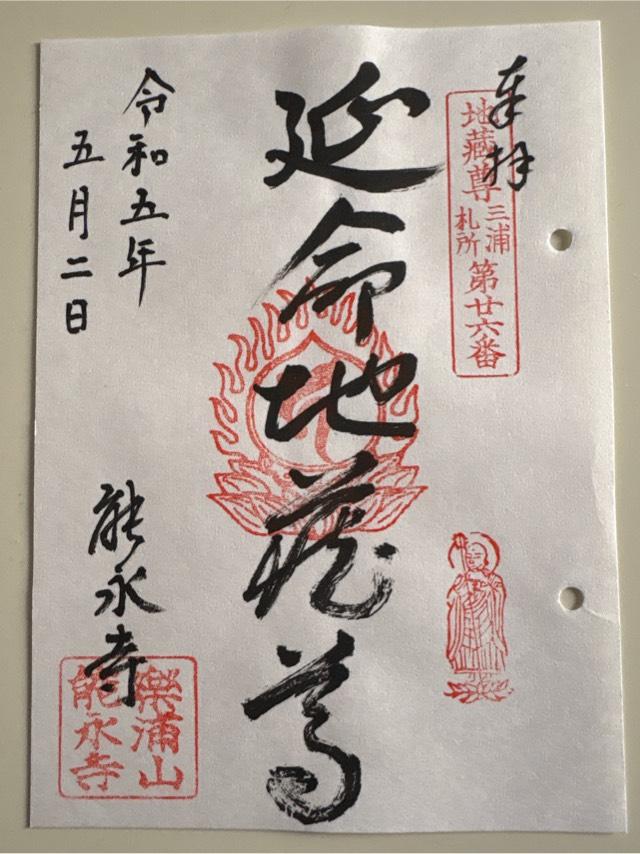 奉拝
地蔵尊三浦札所第廿六番
延命地蔵尊
令和五年
五月二日
能永寺
樂浦山
能永寺